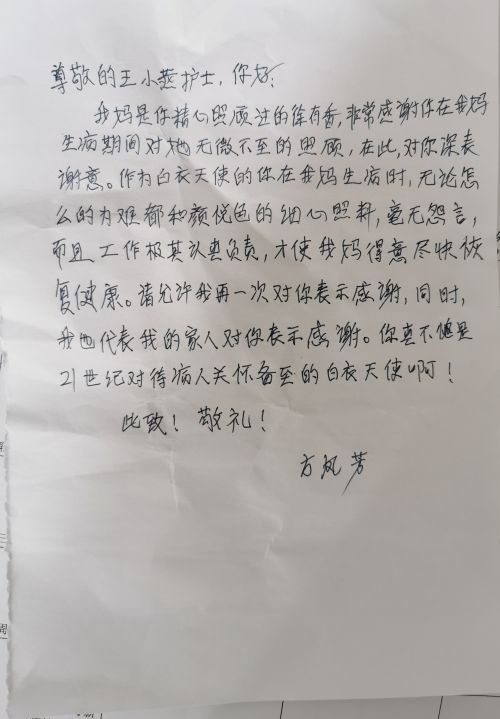 尊敬的王小燕护士，你好：
我妈是你精心照顾过的徐有香，非常感谢你在我妈
生病期间对她无微不至的照顾，在此，对你深表
谢意。作为白衣天使的你在我妈生病时，无论怎
么的为难都和颜悦色的细心照料，毫无怨言，
而且工作极其认真负责，才使我妈得意尽快恢
复健康。请允许我再一次对你表示感谢，同时，
我也代表我的家人对你表示感谢。你真不愧是
21世纪对待病人关怀备至的白衣天使啊！
此致！敬礼！
方凤芳